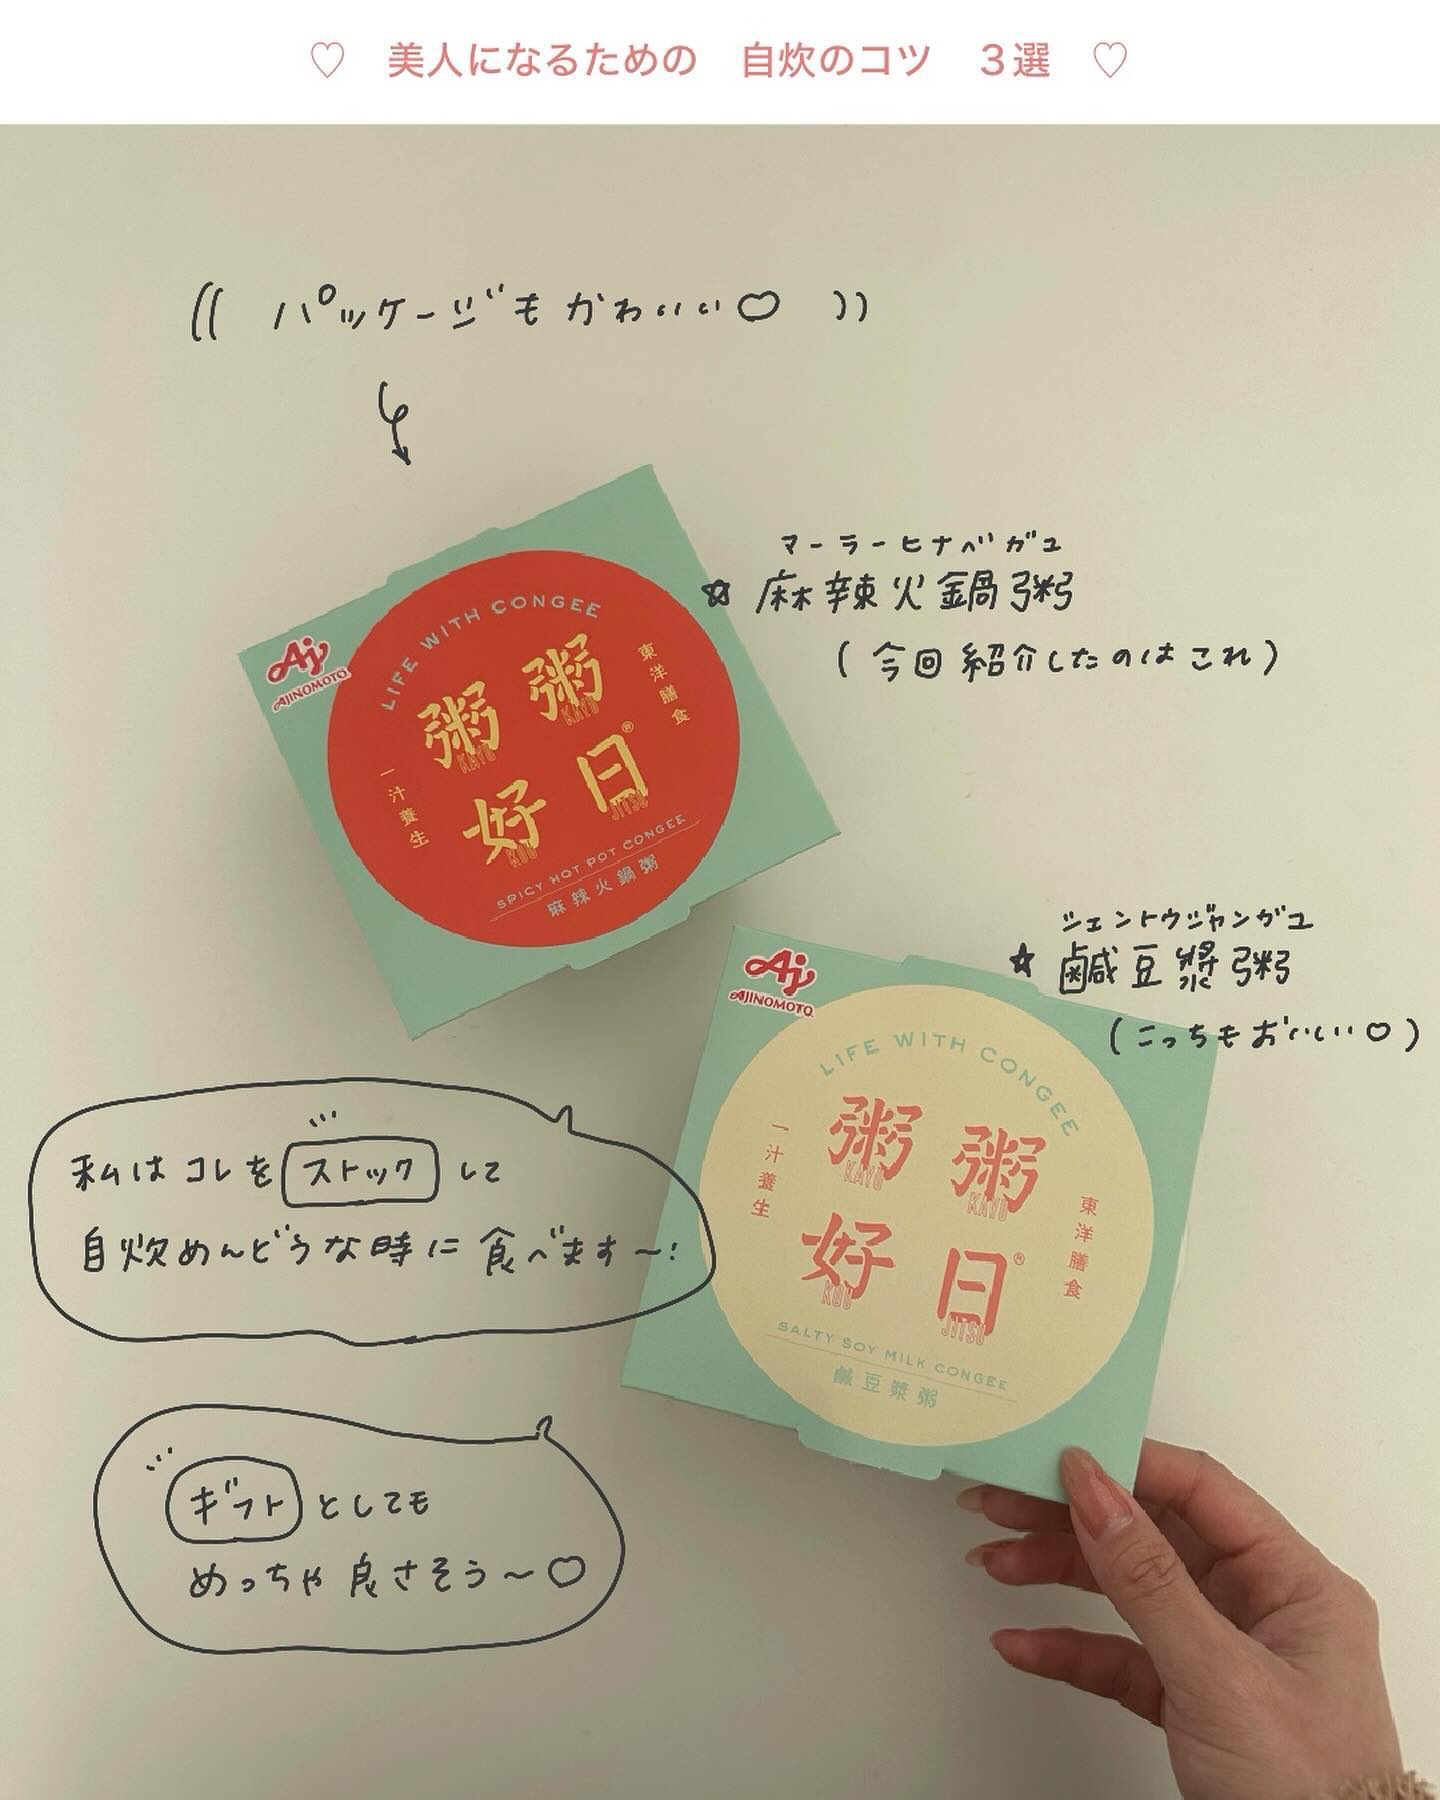 ♡ 美人になるための 自炊のコツ 3選 ♡
(( パッケージもかわいい♡ ))
マーラーヒナベガユ
☆ 麻辣火鍋粥
(今回紹介したのはこれ)
Aj
AJINOMOTO®
LIFE WITH CONGEE
東洋膳食
粥粥
KAYU KAYU
好日®
KOU JITSU
一汁養生
SPICY HOT POT CONGEE
麻辣火鍋粥
シェントウジャンガユ
☆ 鹹豆漿粥
(こっちもおいしい♡)
Aj
AJINOMOTO®
LIFE WITH CONGEE
粥粥
KAYU KAYU
一汁養生
東洋膳食
好日®
KOU JITSU
SALTY SOY MILK CONGEE
鹹豆漿粥
私はコレをストックして
自炊めんどうな時に食べます〜!
ギフトとしても
めっちゃ良さそう〜♡